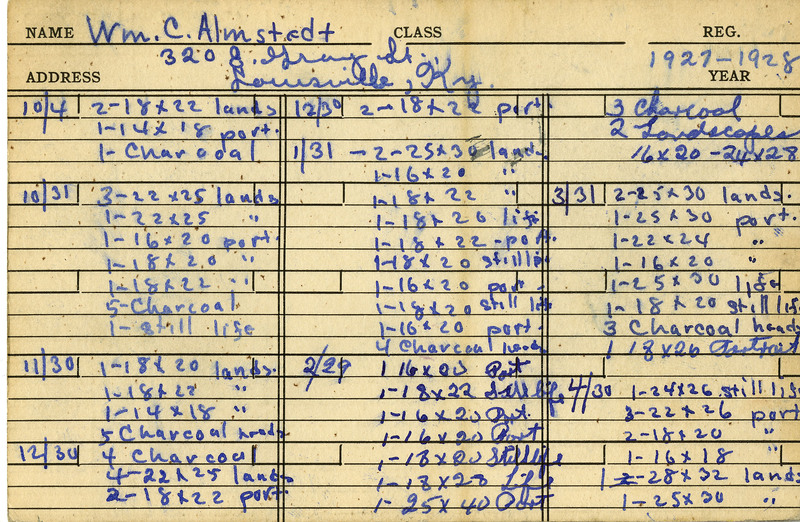 NAME Wm. C. Almstedt CLASS REG.
320 E. Gray St.
Louisville, Ky. 1927-1928
ADDRESS YEAR
10/4 2-18x22 lands
1-14x18 port.
1-Charcoal
10/31 3-22x25 lands.
1-22x25 "
1-16x20 port.
1-18x20 "
1-18x22 "
5-Charcoal
1-still life
11/30 1-18x20 lands.
1-18x22 "
1-14x18 "
5 Charcoal heads
12/30 4 Charcoal
4-22x25 lands
2-18x22 port.
12/30 2-18x22 port.
1/31 -2-25x30 lands.
1-16x20 "
1-18x22 "
1-18x26 life
1-18x22-port.
1-18x20 still life
1-16x20 port.
1-18x20 still life
1-16x20 port.
4 Charcoal heads
2/29 1 16x20 Port
1-18x22 Still life
1-16x20 Port.
1-16x20 Port
1-18x20 Still life
1-18x23 Life
1-25x40 Port
3 Charcoal
2 Landscapes
16x20-24x28
3/31 2-25x30 lands.
1-25x30 port.
1-22x24 "
1-16x20 "
1-25x30 life
1-18x20 still life
3 Charcoal heads
1 18x26
4/30 1-24x26 still life
3-22x26 port
2-18x20 "
1-16x18 "
1-28x32 lands
1-25x30 "